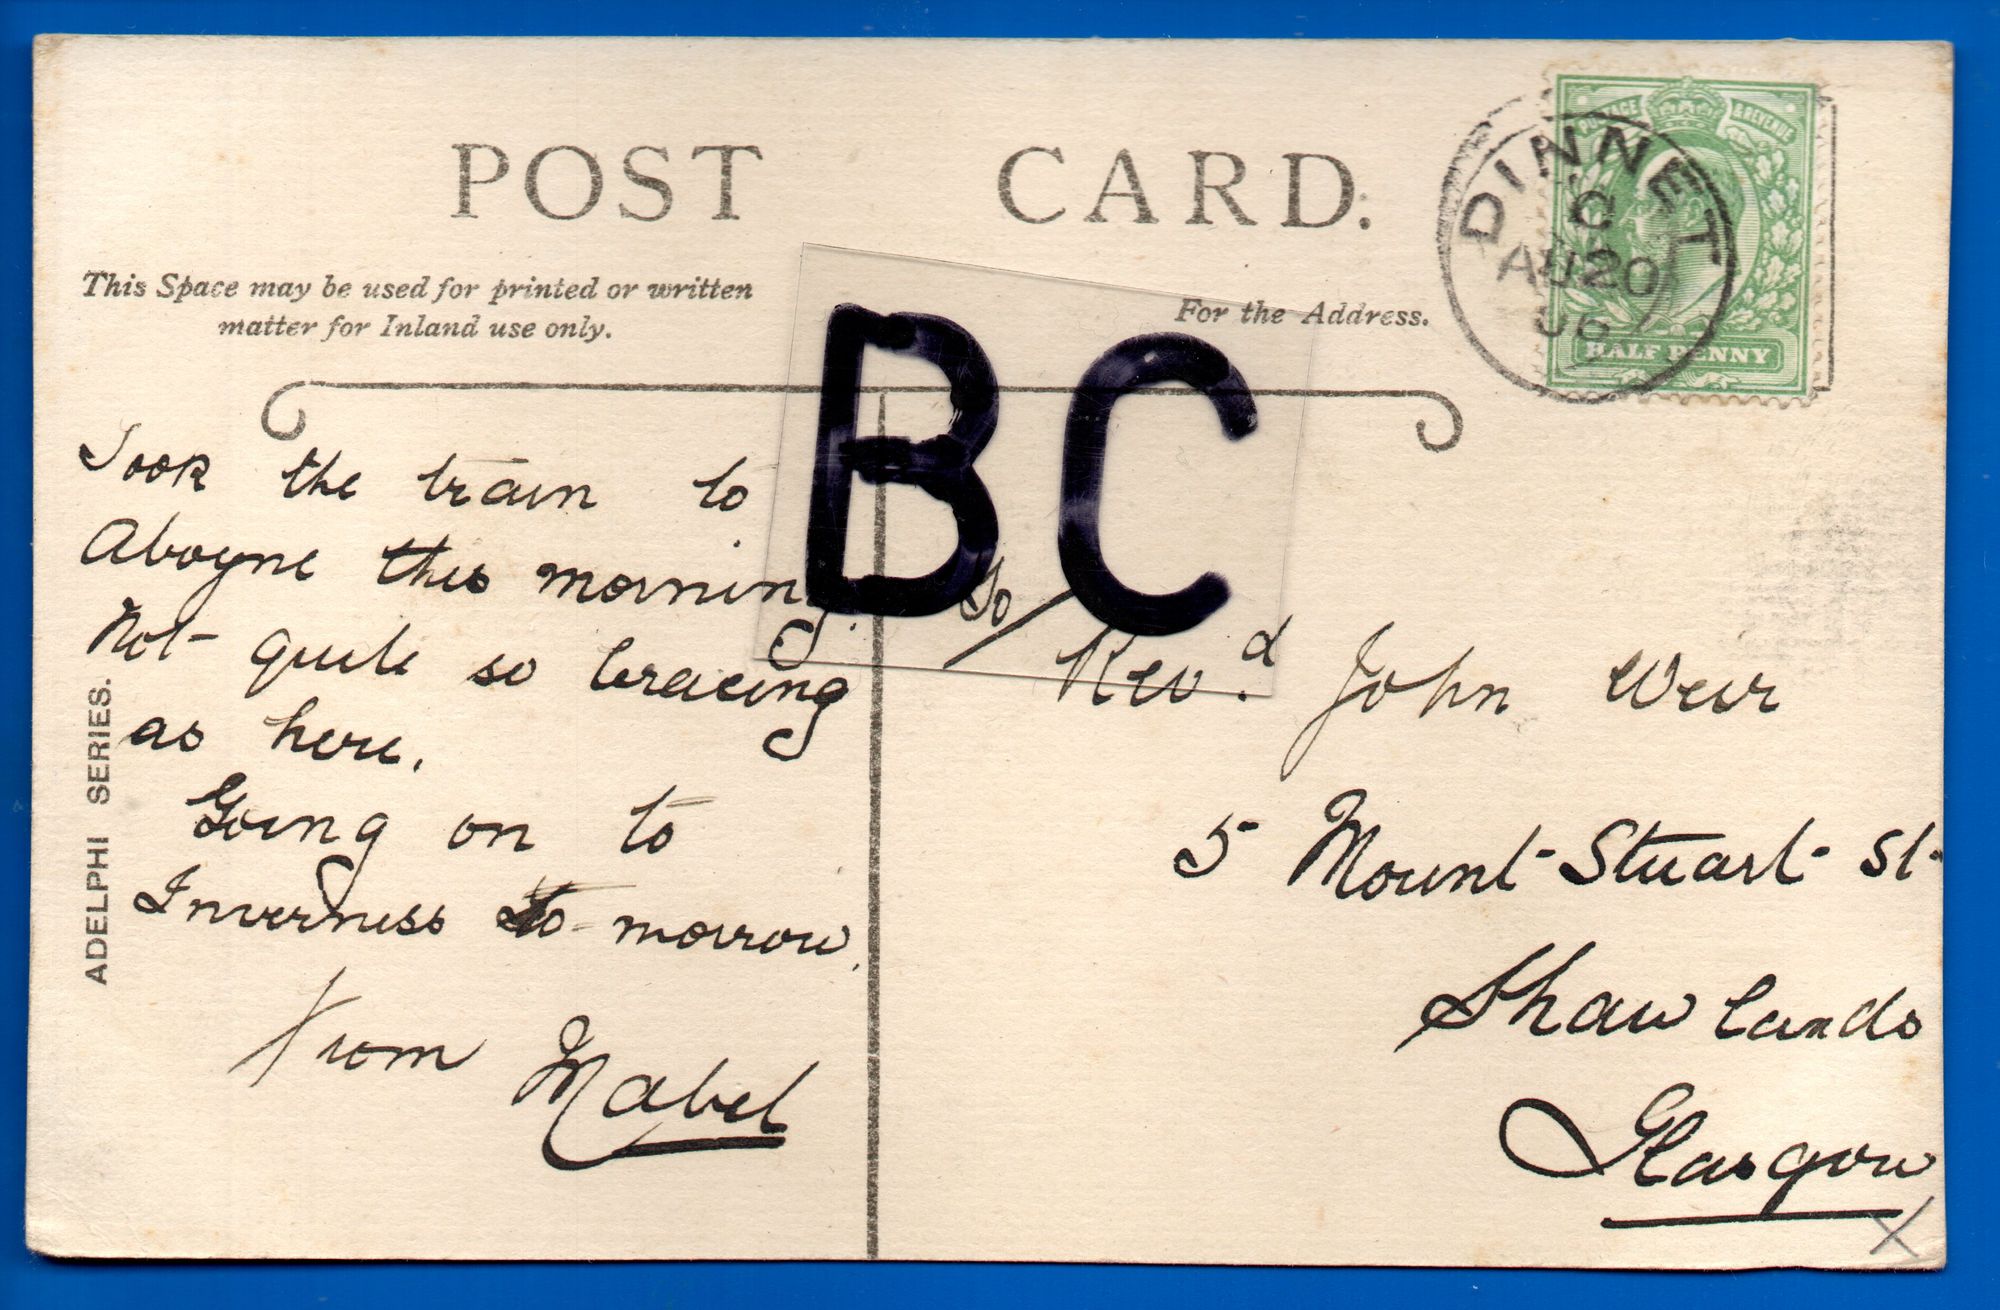 POST CARD.
This Space may be used for printed or written
matter for Inland use only.
For the Address.
POSTAGE & REVENUE
HALF PENNY
DINNET
C
AU 20
06
BC
Took the train to
Aboyne this morning.
Not quite so bracing
as here.
Going on to
Inverness to-morrow.
From Mabel
ADELPHI SERIES.
To/
Rev.d John Weir
5 Mount Stuart St.
Shawlands
Glasgow
X